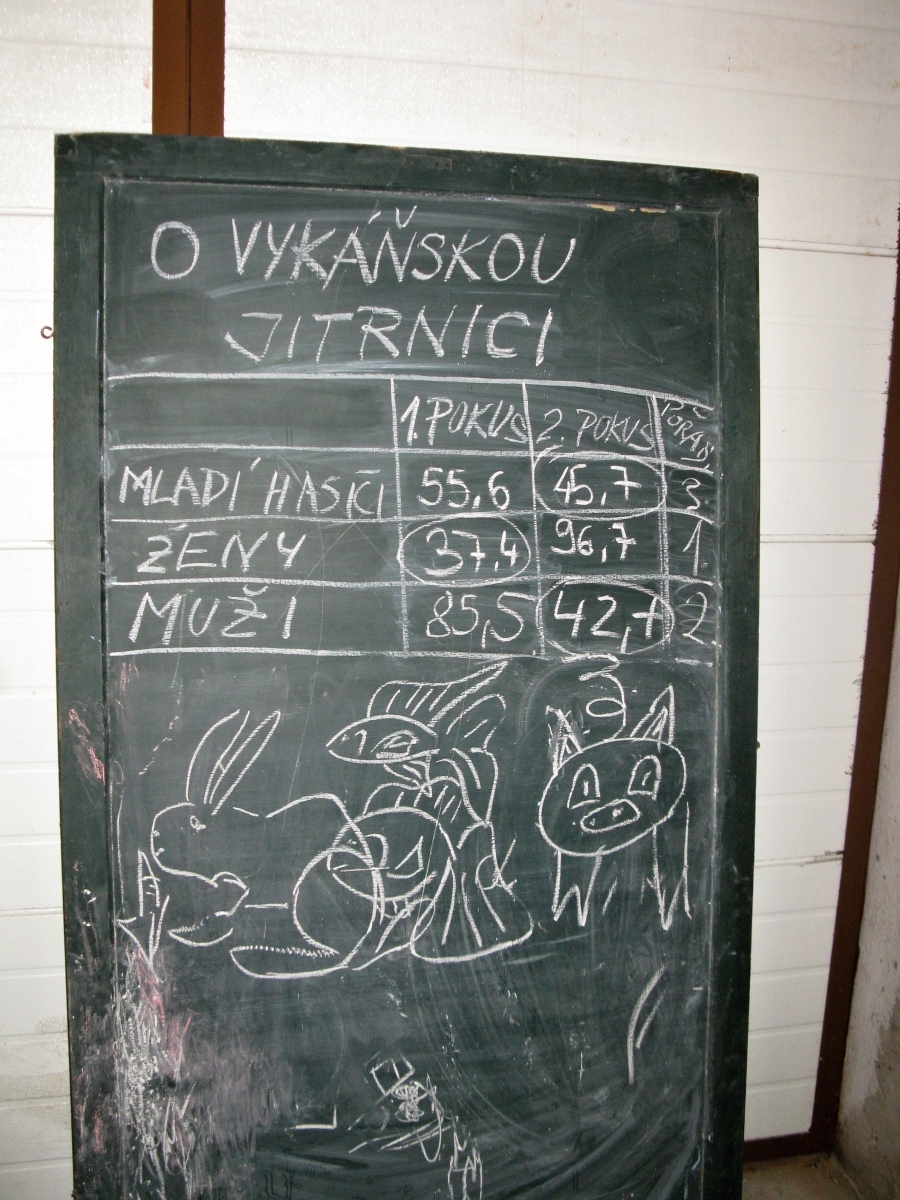 O VYKÁŇSKOU
JITRNICI
1. POKUS 2. POKUS POŘAD.
MLADÍ HASIČI 55,6 45,7 3.
ŽENY 37,4 96,7 1.
MUŽI 85,5 42,7 2